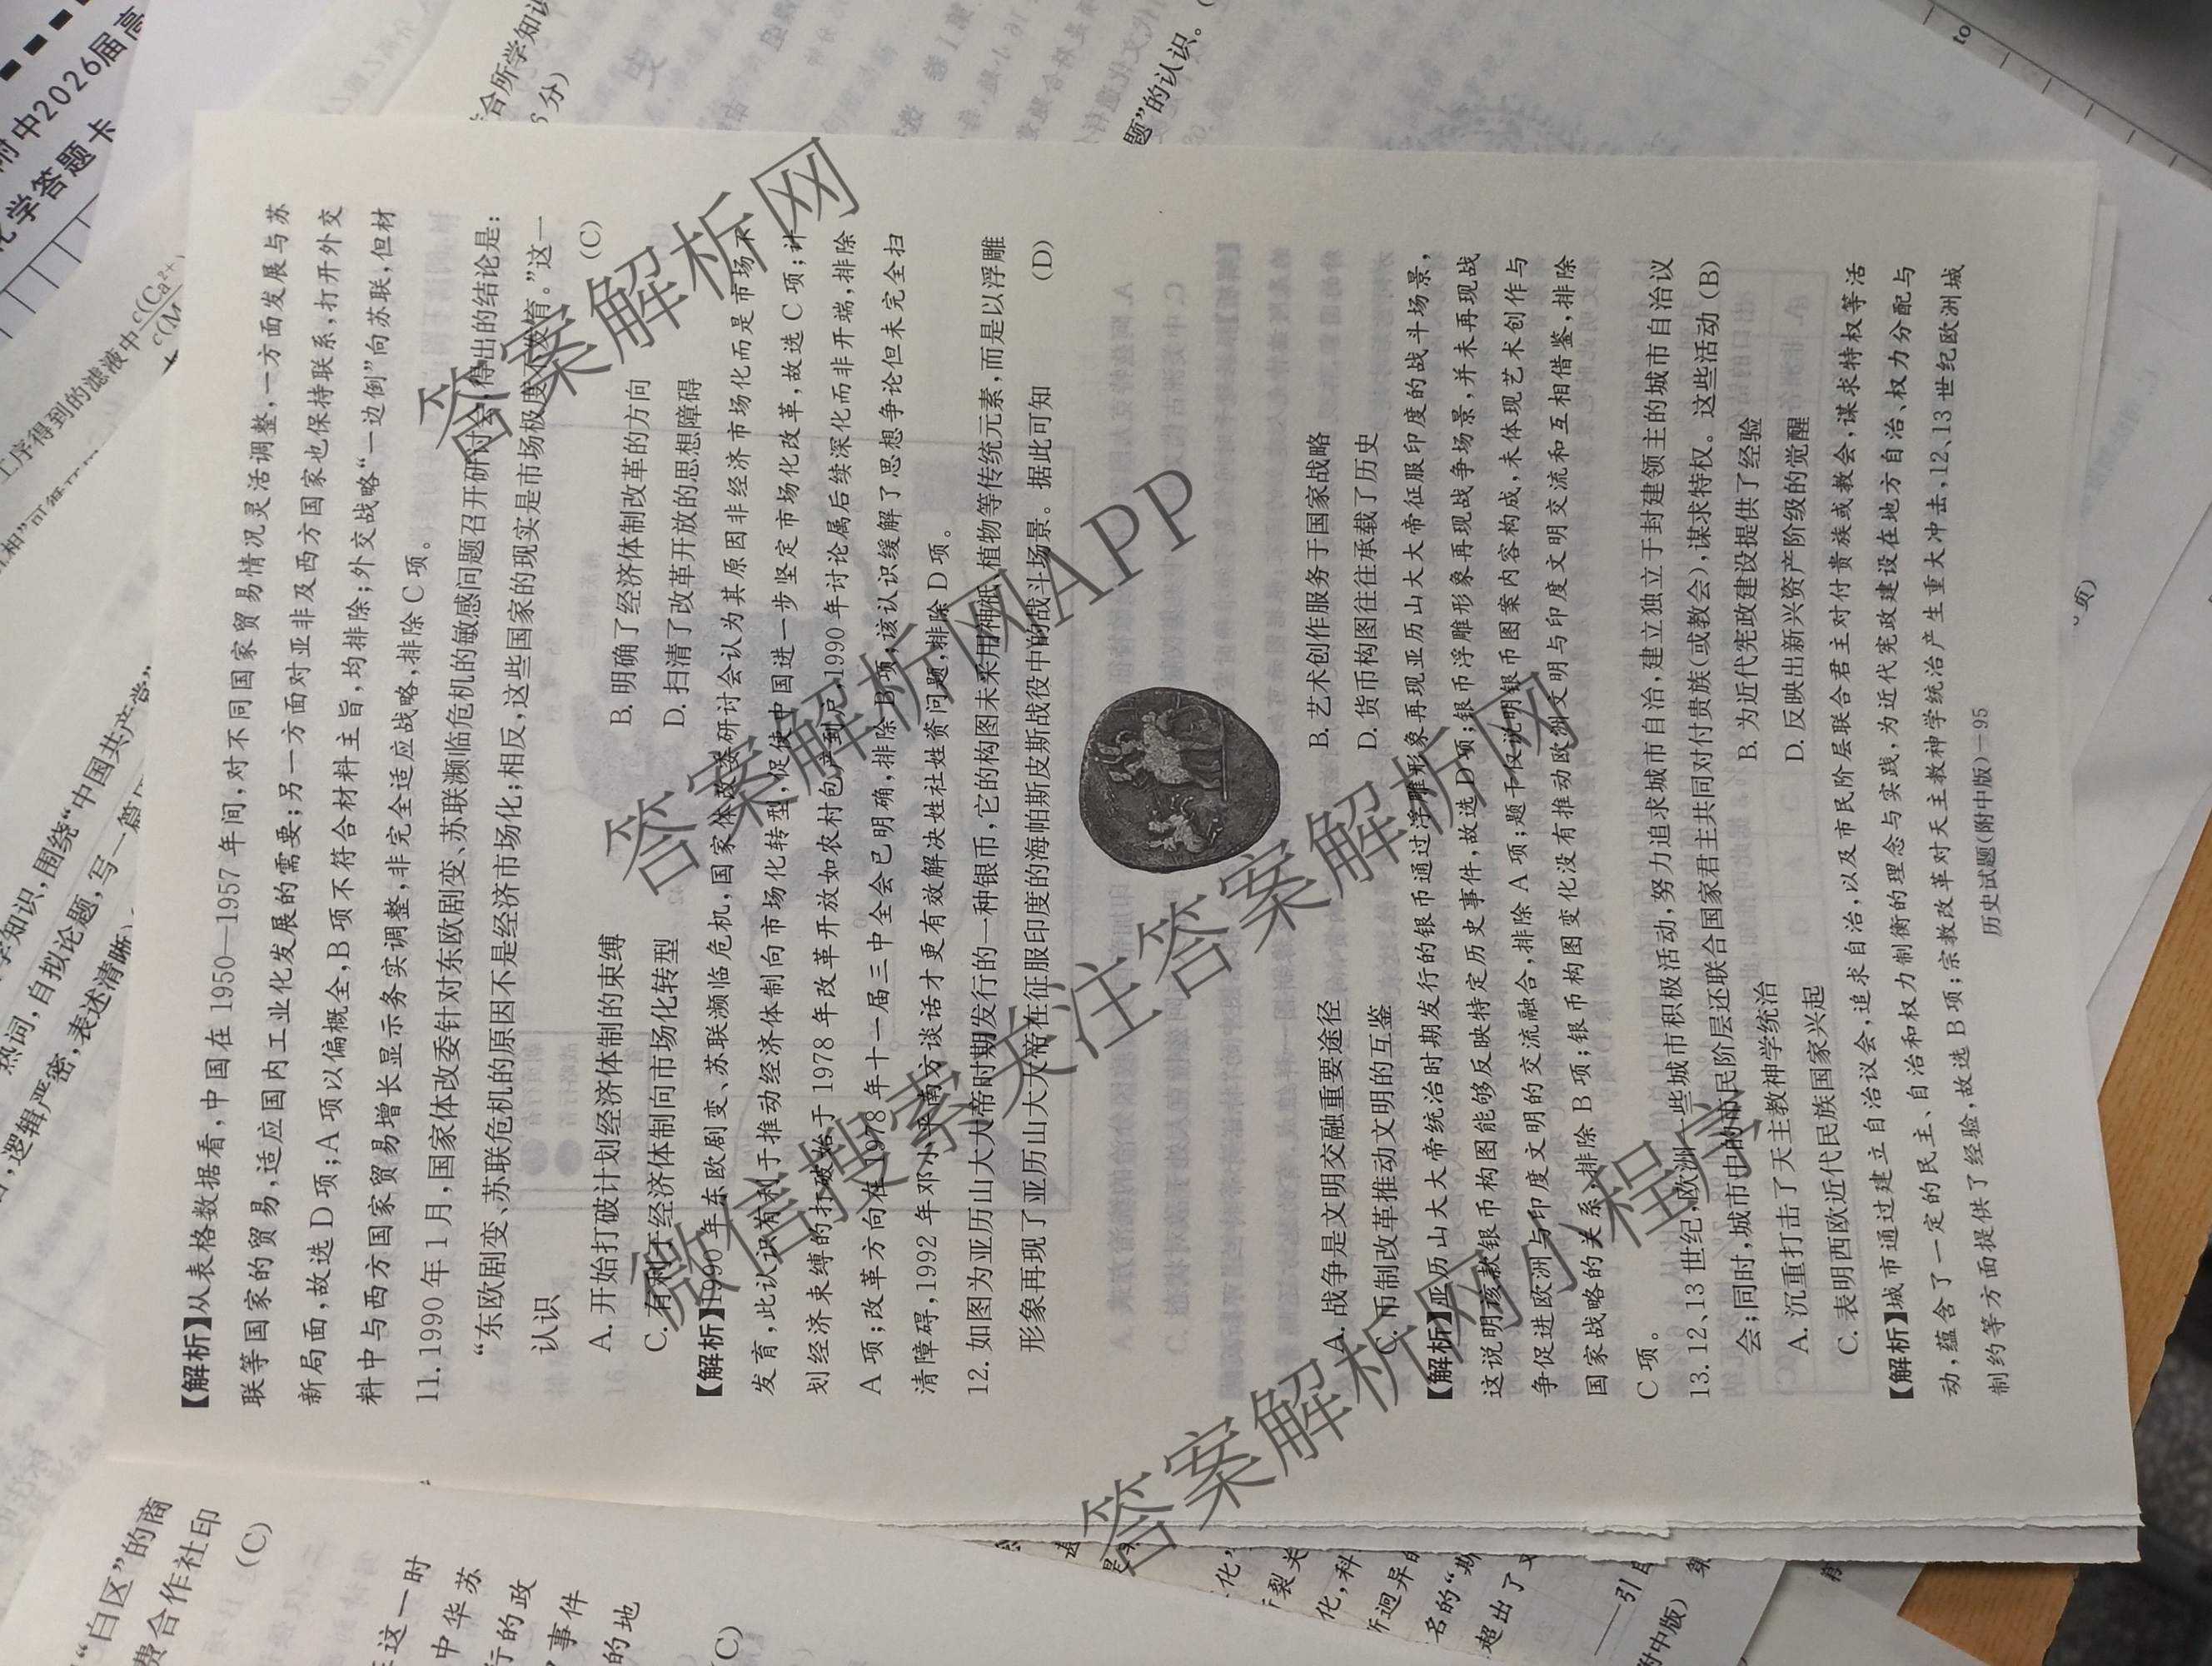 【解析】从表格数据看,中国在1950—1957年间,对不同国家贸易情况灵活调整,一方面发展与苏
联等国家的贸易,适应国内工业化发展的需要;另一方面对亚非及西方国家也保持联系,打开外交
新局面,故选D项;A项以偏概全,B项不符合材料主旨,均排除;外交战略“一边倒”向苏联,但材
料中与西方国家贸易增长显示务实调整,非完全适应战略,排除C项。
11. 1990年1月,国家体改委针对东欧剧变、苏联濒临危机的敏感问题召开研讨会,得出的结论是:
“东欧剧变、苏联危机的原因不是经济市场化;相反,这些国家的现实是市场极度不发育。”这一
认识 (C)
A. 开始打破计划经济体制的束缚 B. 明确了经济体制改革的方向
C. 有利于经济体制向市场化转型 D. 扫清了改革开放的思想障碍
【解析】1990年东欧剧变、苏联濒临危机,国家体改委研讨会认为其原因非经济市场化而是市场不
发育,此认识有利于推动经济体制向市场化转型,促使中国进一步坚定市场化改革,故选C项;计
划经济束缚的打破始于1978年改革开放如农村包产到户,1990年讨论属后续深化而非开端,排除
A项;改革方向在1978年十一届三中全会已明确,排除B项;该认识缓解了思想争论但未完全扫
清障碍,1992年邓小平南方谈话才更有效解决姓社姓资问题,排除D项。
12. 如图为亚历山大大帝时期发行的一种银币,它的构图未采用神祇、植物等传统元素,而是以浮雕
形象再现了亚历山大大帝在征服印度的海帕斯皮斯战役中的战斗场景。据此可知 (D)
A. 战争是文明交融重要途径 B. 艺术创作服务于国家战略
C. 币制改革推动文明的互鉴 D. 货币构图往往承载了历史
【解析】亚历山大大帝统治时期发行的银币通过浮雕形象再现亚历山大大帝征服印度的战斗场景,
这说明该款银币构图能够反映特定历史事件,故选D项;银币浮雕形象再现战争场景,并未再现战
争促进欧洲与印度文明的交流融合,排除A项;题干仅说明银币图案内容构成,未体现艺术创作与
国家战略的关系,排除B项;银币构图变化没有推动欧洲文明与印度文明交流和互相借鉴,排除
C项。
13. 12、13世纪,欧洲一些城市积极活动,努力追求城市自治,建立独立于封建领主的城市自治议
会;同时,城市中的市民阶层还联合国家君主共同对付贵族(或教会),谋求特权。这些活动 (B)
A. 沉重打击了天主教神学统治 B. 为近代宪政建设提供了经验
C. 表明西欧近代民族国家兴起 D. 反映出新兴资产阶级的觉醒
【解析】城市通过建立自治议会,追求自治,以及市民阶层联合君主对付贵族或教会,谋求特权等活
动,蕴含了一定的民主、自治和权力制衡的理念与实践,为近代宪政建设在地方自治、权力分配与
制约等方面提供了经验,故选B项;宗教改革对天主教神学统治产生重大冲击,12、13世纪欧洲城
历史试题(附中版)—95
答案解析网
答案解析网APP
微信搜索关注答案解析网
答案解析网小程序
附中2026届高
化学答题卡
合所学知识
6分)
题”的认识。
to
工序得到的滤液中
学知识,围绕“中国共产党”
热词,自拟论题,写一篇
逻辑严密,表述清晰)
“白区”的商
费合作社印
(C)
在这一时
中华苏
行的政
事件
的地
(C)
化,科
超出了
——引自
附中版)